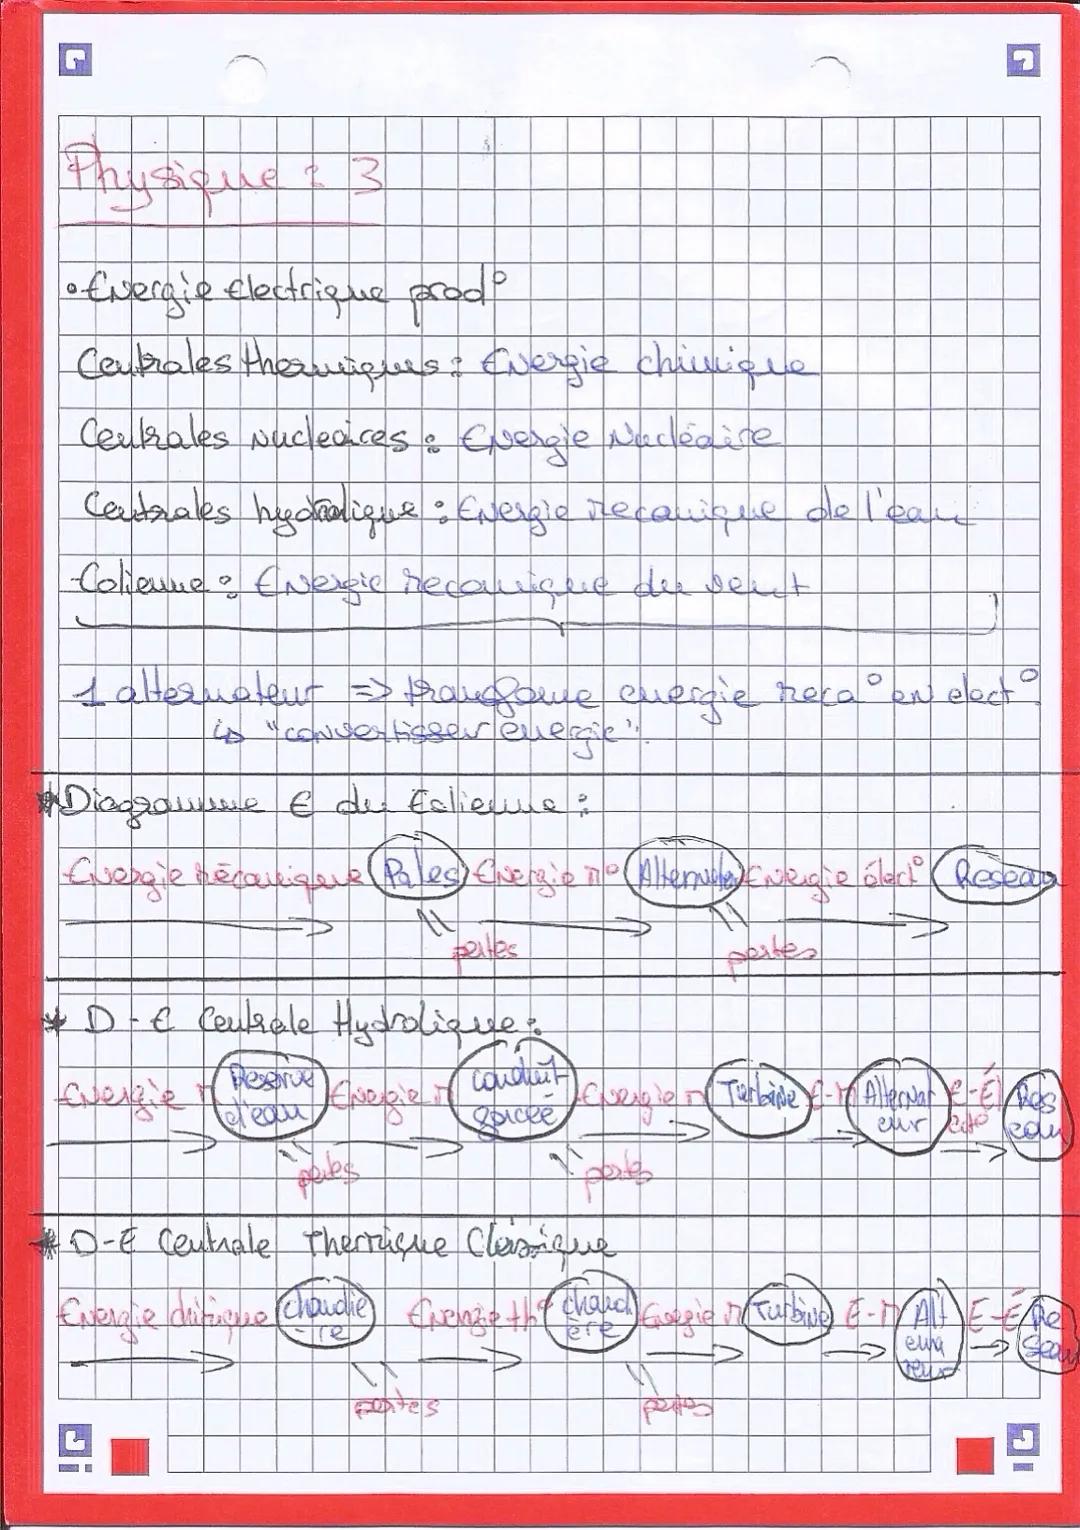 Physique : 3
• Energie électrique prod°
Centrales thermiques : Energie chimique
Centrales nucléaires : Energie Nucléaire
Centrales hydrolique : Energie mecanique de l'eau
-Eolienne : Energie mecanique du vent
1 alternateur => transforme energie meca° en elect°
↳ "convertisseur energie".
* Diagramme E du Eolienne :
Energie mécanique Pales Energie m° Alternateur Energie élect° Reseau
pertes pertes
* D-E Centrale Hydrolique :
Energie m Reserve d'eau Energie m conduit Energie m Turbine E-M Alternateur E-É Reseau
pertes pertes
* D-E Centrale Thermique Classique
Energie chimique chaudie-re Energie th° chaudère Energie m Turbine E-M Alternateur E-É Reseau
pertes pertes